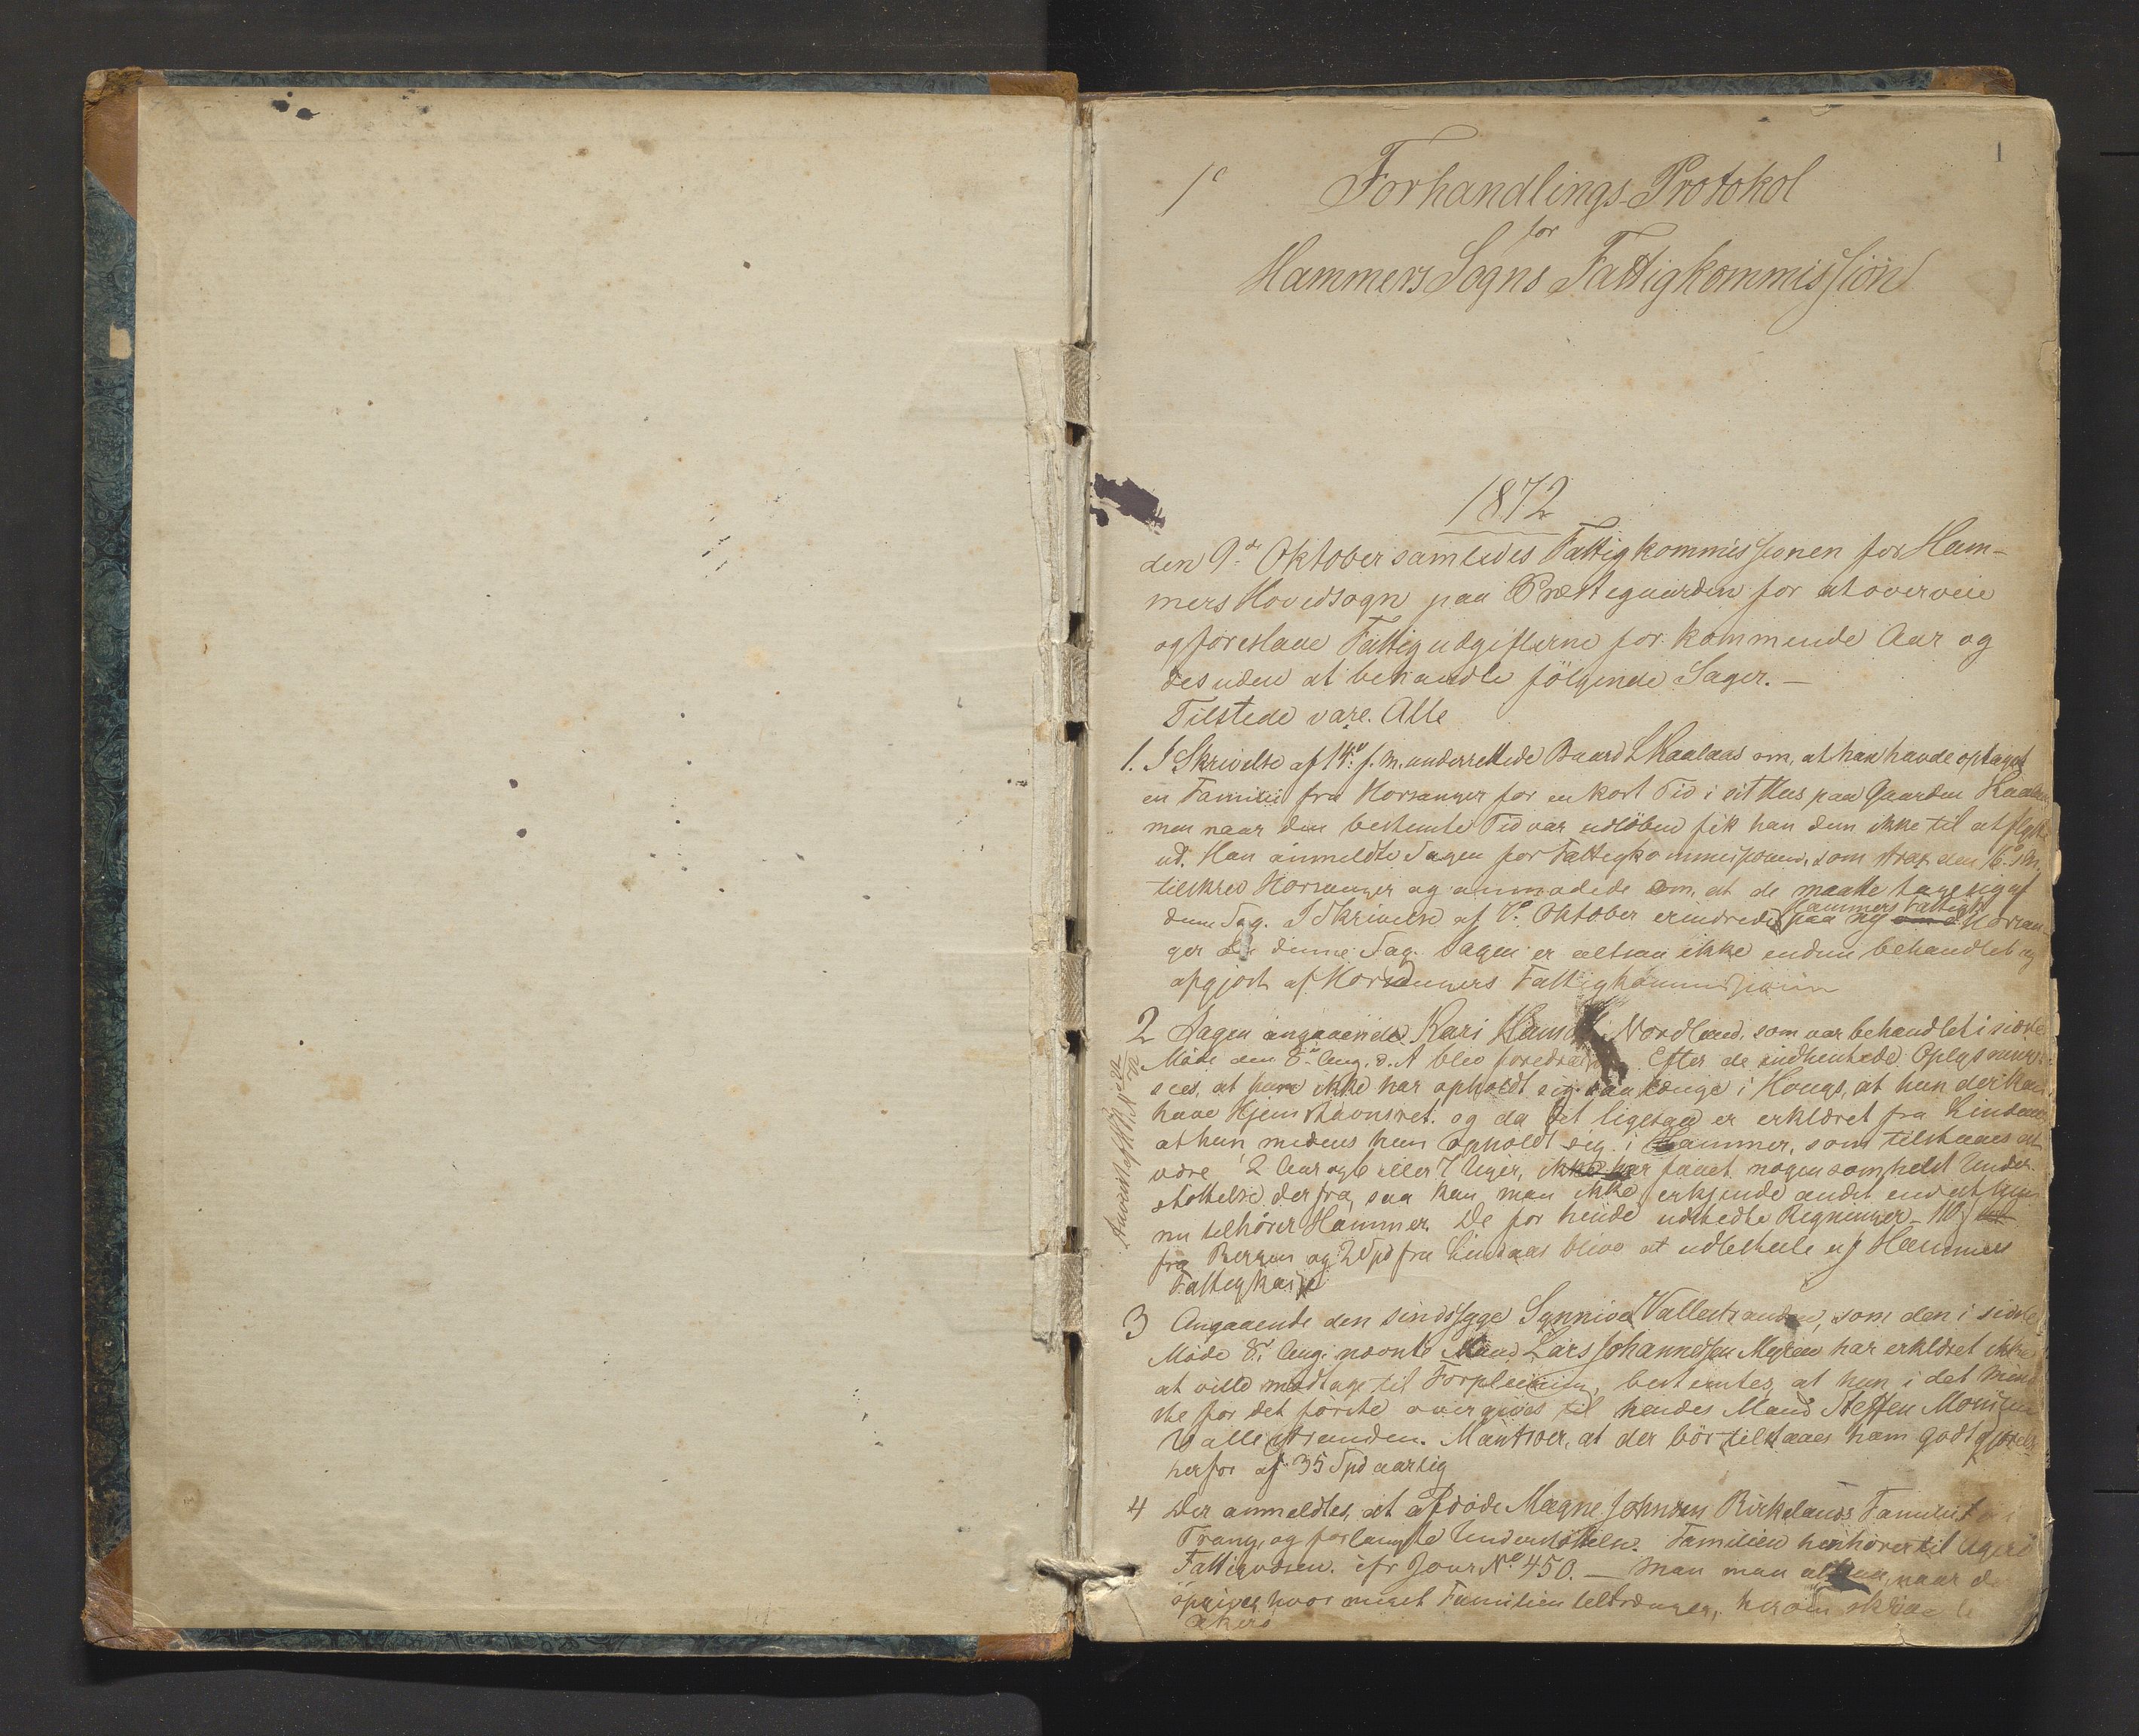 1
1<sup>e</sup> Forhandlings-Protokol
for
Hammers Sogns Fattigkommission
1872
den 9de Oktober samledes Fattigkommissionen for Ham-
mers Hovedsogn paa Præstegaarden for at overveie
og foreslaae Fattigudgifterne for kommende Aar og
desuden at behandle følgende Sager. —
Tilstede vare. Alle
1. I Skrivelse af 14de f. M. underrettede Baard L Kaalaas om, at han havde optaget
en Familie fra Horsanger for en kort Tid i sit Hus paa Gaarden
men naar den bestemte Tid var udløben fik han dem ikke til at flytte
ud. Han anmeldte Sagen for Fattigkommissionen, som strax den 16de
tilskrev Horsanger og anmodede om, at de maatte tage sig af
denne Sag. I Skrivelse af Oktober erindrede Hammers Fattigk paa ny Horsan-
ger denne Sag. Sagen er altsaa ikke endnu behandlet og
afgjort af Horsangers Fattigkommission
2 Sagen angaaende Kari Nordland, som var behandlet i sidste
Møde den 8de Aug. d. A blev foredraget. Efter de indhentede Oplysninger
sees, at hun ikke har opholdt sig saa længe i Hougs, at hun der kan
have Hjemstavnsret. og da det ligesaa er erklæret fra Lindaas
at hun, medens hun opholdt sig i Hammer, som tilstaaes at
være 2 Aar og 6 eller 7 Uger, ikke har faaet nogensomhelst Under-
støttelse derfra, saa kan man ikke erkjende andet end at hun
nu tilhører Hammer. De for hende udstedte Regninger
fra Bergen og 2 Spd fra Lindaas blive at udbetale af Hammers
Fattigkasse
3 Angaaende den sindssyge Synnive Vallestranden, som den i sidste
Møde 8de Aug. nævnte Mand Lars Johannessen Myren har erklæret ikke
at ville modtage til Forpleining, bestemtes, at hun i det mind
ste for det første overgives til hendes Mand Steffen Monsen
Vallestranden. Man troer, at der bør tilstaaes ham godtgjørelse
herfor af 35 Spd aarlig
4 Der anmeldtes, at afdøde Magne Johnsen Birkelands Familie
Trang, og forlangte Understøttelse. Familien henhører til
Fattigvæsen. cfr Jour No 450. — Man maa altsaa, naar
hvor meget Familien tiltrænger, herom skrive
Akers